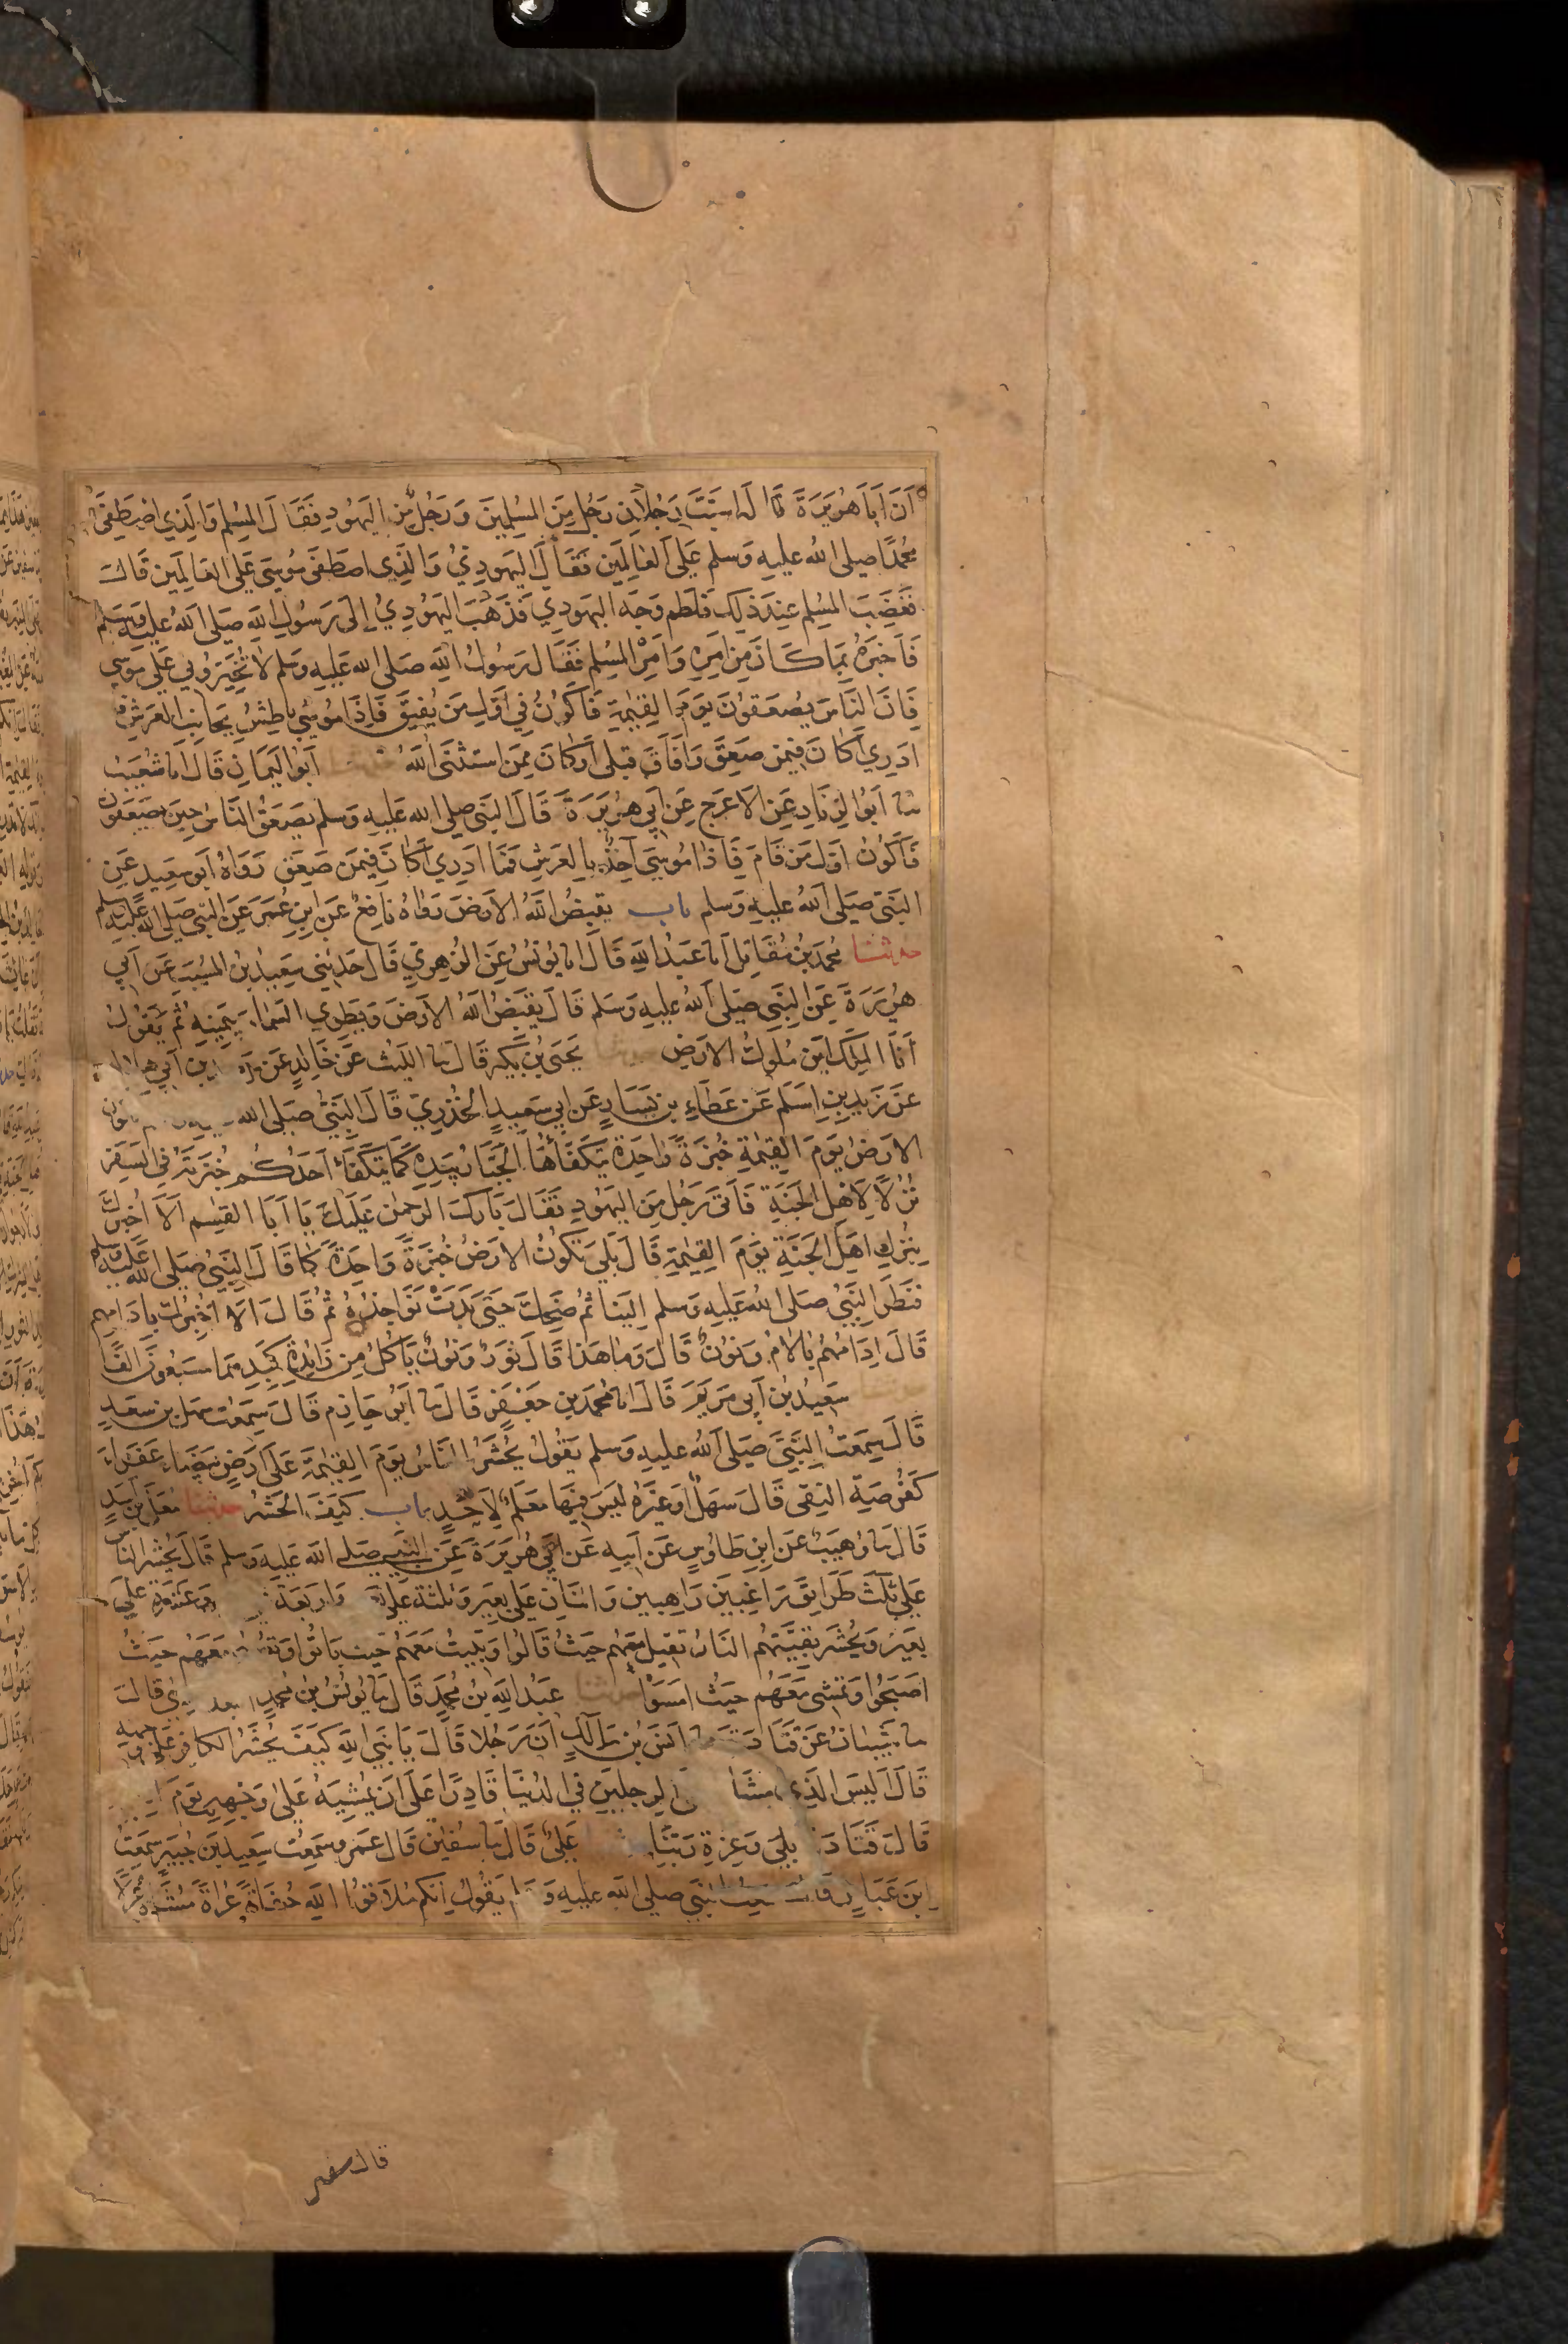 اَنَّ اَبَا هُرَيرَةَ قَالَ استَبَّ رَجُلَانِ رَجُلٌ مِنَ المُسْلِمِينَ وَرَجُلٌ مِنَ اليَهُودِ فَقَالَ المُسْلِمُ وَالَّذِي اصْطَفَى
مُحَمَّدًا صلى الله عليهِ وَسلم عَلَى العَالَمِينَ فَقَالَ اليَهُودِيُّ وَالَّذِي اصطَفَى مُوسَى عَلَى العَالَمِينَ قَالَ
فَغَضِبَ المُسْلِمُ عِندَ ذلِكَ فَلَطَمَ وَجهَ اليَهُودِي فَذَهَبَ اليَهُودِيُّ إِلَى رَسُولِ اللهِ صَلى اللهُ عليهِ وَسَلم
فَاَخبَرَهُ بِمَا كَانَ مِن اَمرِهِ وَاَمرِ المُسْلِمِ فَقَالَ رَسُولُ اللهِ صَلى الله عَليهِ وَسلم لَا تُخَيِّرُونِي عَلَى مُوسى
فَاِنَّ النَّاسَ يَصْعَقُونَ يَوْمَ القِيمَةِ فَاَكُونُ فِي اَوَّلِ مَن يُفِيقُ فَاِذَا مُوسٰى بَاطِشٌ بِجَانِبِ العَرشِ فَلا
اَدرِي اَكَانَ فِيمَن صَعِقَ وَاَفَاقَ قَبلِى اَوكَانَ مِمَّن استَثْنَى اللهُ اَبُو اليَمَانِ قَالَ انا شُعَيبٌ
ثنا اَبُو الزِّنَادِ عَنِ الاَعرَجِ عَن اَبِي هُرَيرَةَ قَالَ النَّبِي صلى الله عَليهِ وَسَلم يَصعَقُ النَّاسُ حِينَ يَصعَقُونَ
فَاَكُونُ اَوَّلَ مَن قَامَ فَاِذَا مُوسَى آخِذٌ بِالعَرشِ فَمَا اَدرِي اَكَانَ فِيمَن صَعِقَ رَوَاهُ اَبُو سَعِيدٍ عَنِ
النَّبِيِّ صَلى اللهُ عَليهِ وَسَلم باب يَقبِضُ اللهُ الاَرضَ رَوَاهُ نَافِعٌ عَنِ ابنِ عُمَرَ عَنِ النَّبِي صَلى الله عَليهِ وسلم
حدثنا مُحَمَّدُ بنُ مُقَاتِلٍ انا عَبدُ اللهِ قَالَ انا يُونُسُ عَنِ الزُّهرِيِّ قَالَ حَدَّثَنِي سَعِيدُ بنُ المُسَيَّبِ عَن اَبِي
هُرَيرَةَ عَنِ النَّبِي صَلى اللهُ عليهِ وَسَلم قَالَ يَقبِضُ اللهُ الاَرضَ وَيَطوِي السَّمَاءَ بِيَمِينِهِ ثُمَّ يَقُولُ
اَنَا المَلِكُ اَينَ مُلُوكُ الاَرضِ حدثنا يَحيَى بنُ بُكَيرٍ قَالَ ثنا اللَّيثُ عَن خَالِدٍ عَن بن اَبِي هلال
عَن زَيدِ بنِ اَسلَمَ عَن عَطَاءِ بنِ يَسَارٍ عَن اَبي سَعِيدٍ الخُدرِيِّ قَالَ النَّبِيُّ صَلى الله تكون
الاَرضُ يَومَ القِيمَةِ خُبزَةً وَاحِدَةً يَتَكَفَّأُهَا الجَبَّارُ بِيَدِهِ كَمَا يَتَكَفَّأُ اَحَدُكُم خُبزَتَهُ فِي السَّفَرِ
نُزُلًا لِاَهلِ الجَنَّةِ فَاَتَى رَجُلٌ مِنَ اليَهُودِ فَقَالَ بَارَكَ الرَّحمٰنُ عَلَيكَ يَا اَبَا القٰسِمِ اَلَا اُخبِرُكَ
بِنُزُلِ اَهلِ الجَنَّةِ يَومَ القِيٰمَةِ قَالَ بَلَى تَكُونُ الاَرضُ خُبزَةً وَاحِدَةً كَمَا قَالَ النَّبِيُّ صَلى الله عَليه وسلم
فَنَظَرَ النَّبِيُّ صَلى اللهُ عَليهِ وَسلم اِلَينَا ثُمَّ ضَحِكَ حَتَّى بَدَتْ نَوَاجِذُهُ ثُمَّ قَالَ اَلا اُخبِرُكَ بِاِدَامِهِم
قَالَ اِدَامُهُم بَالَامُ وَنُونٌ قَالَ وَمَا هٰذَا قَالَ ثَورٌ وَنُونٌ يَأكُلُ مِن زَائِدَةِ كَبِدِهِمَا سَبعُونَ اَلفًا
سَعِيدُ بنُ اَبِى مَريَمَ قَالَ انا مُحَمَّدُ بن جَعفَرٍ قَالَ ثنا اَبُو حَازِمٍ قَالَ سَمِعتُ سَهلَ بن سَعدٍ
قَالَ سَمِعتُ النَّبِيَّ صَلى اللهُ عليهِ وَسلم يَقُولُ يُحشَرُ النَّاسُ يَومَ القِيٰمَةِ عَلَى اَرضٍ بَيضَاءَ عَفرَاءَ
كَقُرصَةِ النَّقِي قَالَ سَهلٌ اَو غَيرُهُ لَيسَ فِيهَا مَعلَمٌ لِاَحَدٍ باب كَيفَ الحَشرُ حدثنا مُعَلَّى بنُ اَسَدٍ
قَالَ ثنا وُهَيبٌ عَنِ ابنِ طَاوُسٍ عَن اَبِيهِ عَن اَبِي هُرَيرَةَ عَنِ النَّبِيِّ صَلى الله عَليهِ وَسلم قَالَ يُحشَرُ النَّاسُ
عَلَى ثَلٰثِ طَرَائِقَ رَاغِبِينَ رَاهِبِينَ وَاثنَانِ عَلَى بَعِيرٍ وَثَلٰثَةٌ عَلَى وَاَربَعَةٌ وَعَشَرَةٌ عَلَى
بَعِيرٍ وَيَحشُرُ بَقِيَّتَهُمُ النَّارُ تَقِيلُ مَعَهُم حَيثُ قَالُوا وَتَبِيتُ مَعَهُم حَيثُ بَاتُوا وَتُصبِحُ مَعَهُم حَيثُ
اَصبَحُوا وَتُمسِى مَعَهُم حَيثُ اَمسَوْا حدثنا عَبدُ اللهِ بنُ مُحَمَّدٍ قَالَ ثنا يُونُسُ بنُ مُحَمَّدٍ قَالَ
ثنا شَيبَانُ عَن قَتَادَةَ اَنَسُ بنُ مَالِكٍ اَنَّ رَجُلًا قَالَ يَا نَبِيَّ اللهِ كَيفَ يُحشَرُ الكَافِرُ عَلَى وجهِهِ
قَالَ اَلَيسَ الَّذِي اَمشَاهُ الرِّجلَينِ فِي الدُّنيَا قَادِرًا عَلَى اَن يُمشِيَهُ عَلٰى وَجهِهِ يَومَ
قَالَ قَتَادَةُ بَلَى وَعِزَّةِ رَبِّنَا عَلِيٌّ قَالَ ثنا سُفيٰنُ قَالَ عَمرٌو سَمِعتُ سَعِيدَ بنَ جُبَيرٍ سَمِعتُ
ابنَ عَبَّاسٍ النَّبِي صلى الله عليهِ وَ يَقُولُ اِنَّكُم مُلَاقُوا اللهِ حُفَاةً عُرَاةً مُشَاةً غُرلًا
قال سفين